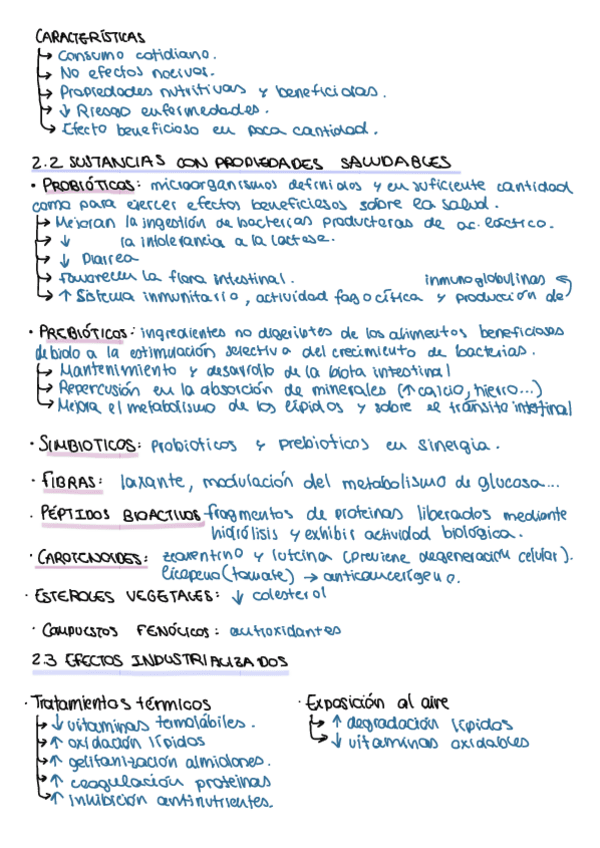 CARACTERÍSTICAS
↳ Consumo cotidiano.
↳ No efectos nocivos.
↳ Propiedades nutritivas y beneficiosas.
↳ ↓ Riesgo enfermedades.
↳ Efecto beneficioso en poca cantidad.
2.2 SUSTANCIAS CON PROPIEDADES SALUDABLES
· PROBIÓTICOS: microorganismos definidos y en suficiente cantidad
como para ejercer efectos beneficiosos sobre la salud.
↳ Mejoran la ingestión de bacterias productoras de ac. láctico.
↳ ↓ la intolerancia a la lactosa.
↳ ↓ Diarrea
↳ Favorecen la flora intestinal. inmunoglobulinas
↳ ↑ Sistema inmunitario, actividad fagocítica y producción de
· PREBIÓTICOS: ingredientes no digeribles de los alimentos beneficiosos
debido a la estimulación selectiva del crecimiento de bacterias.
↳ Mantenimiento y desarrollo de la biota intestinal
↳ Repercusión en la absorción de minerales (↑ calcio, hierro...)
↳ Mejora el metabolismo de los lípidos y sobre el tránsito intestinal
· SIMBIOTICOS: probioticos y prebioticos en sinergia.
· FIBRAS: laxante, modulación del metabolismo de glucosa...
· PÉPTIDOS BIOACTIVOS fragmentos de proteinas liberados mediante
hidrólisis y exhibir actividad biológica.
· CAROTENOIDES: zeaxentino y luteina (previene degeneración celular).
licopeno (tomate) → anticancerígeno.
· ESTEROLES VEGETALES: ↓ colesterol
· COMPUESTOS FENÓLICOS: antioxidantes
2.3 EFECTOS INDUSTRIALIZADOS
· Tratamientos térmicos
↳ ↓ vitaminas termolábiles.
↳ ↑ oxidación lípidos
↳ ↑ gelitanización almidones.
↳ ↑ coagulación proteinas
↳ ↑ inhibición antinutrientes.
· Exposición al aire
↳ ↑ degradación lípidos
↳ ↓ vitaminas oxidables